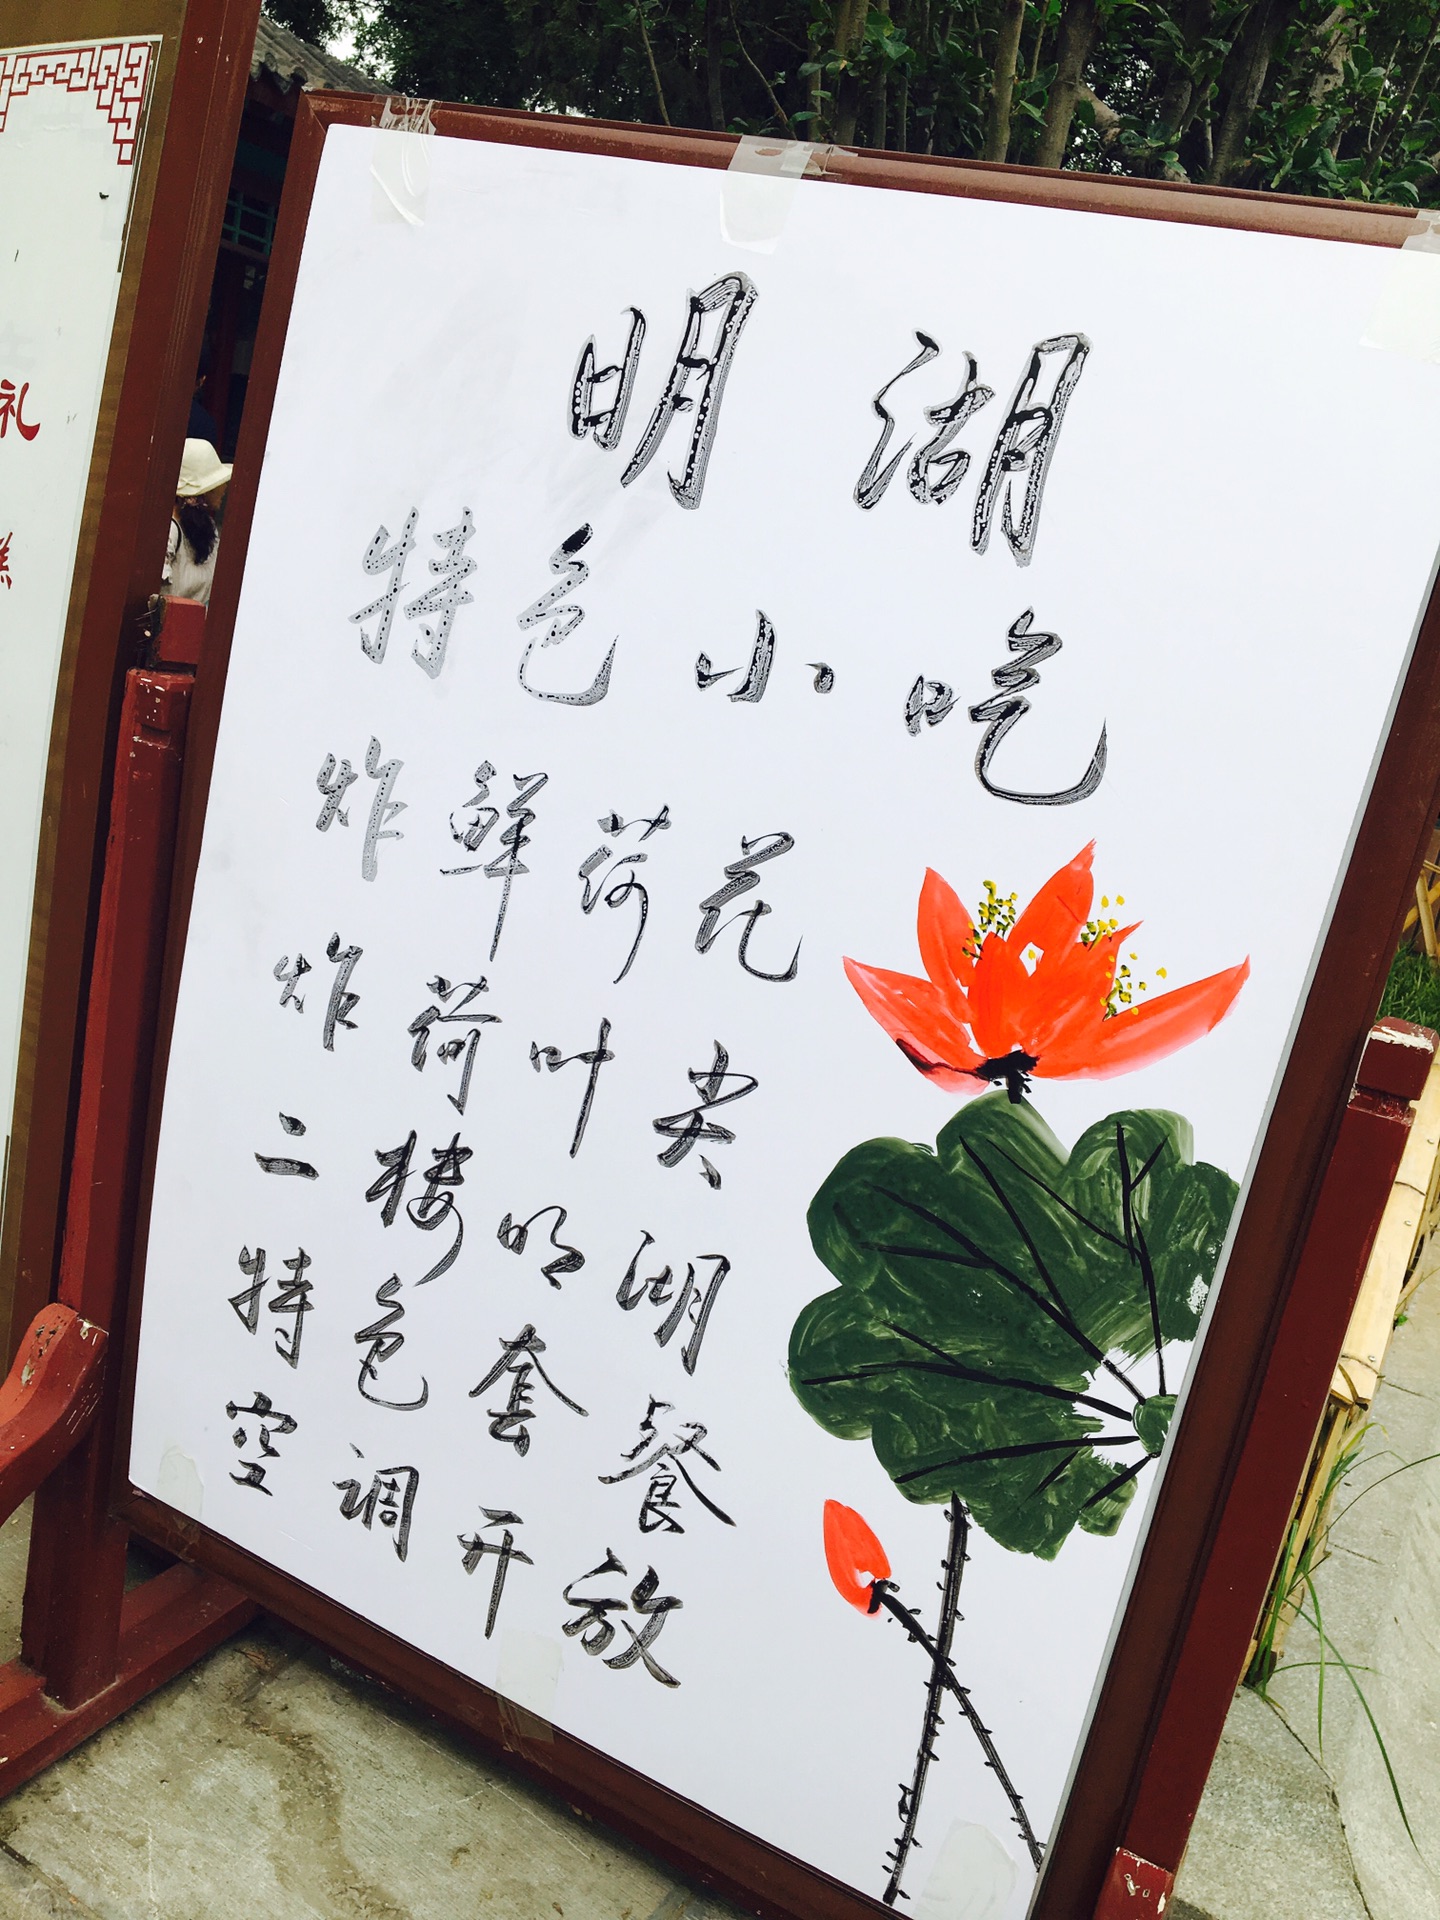 明湖
特色小吃
炸鲜荷花
炸荷叶尖
二楼明湖
特色套餐
空调开放
礼